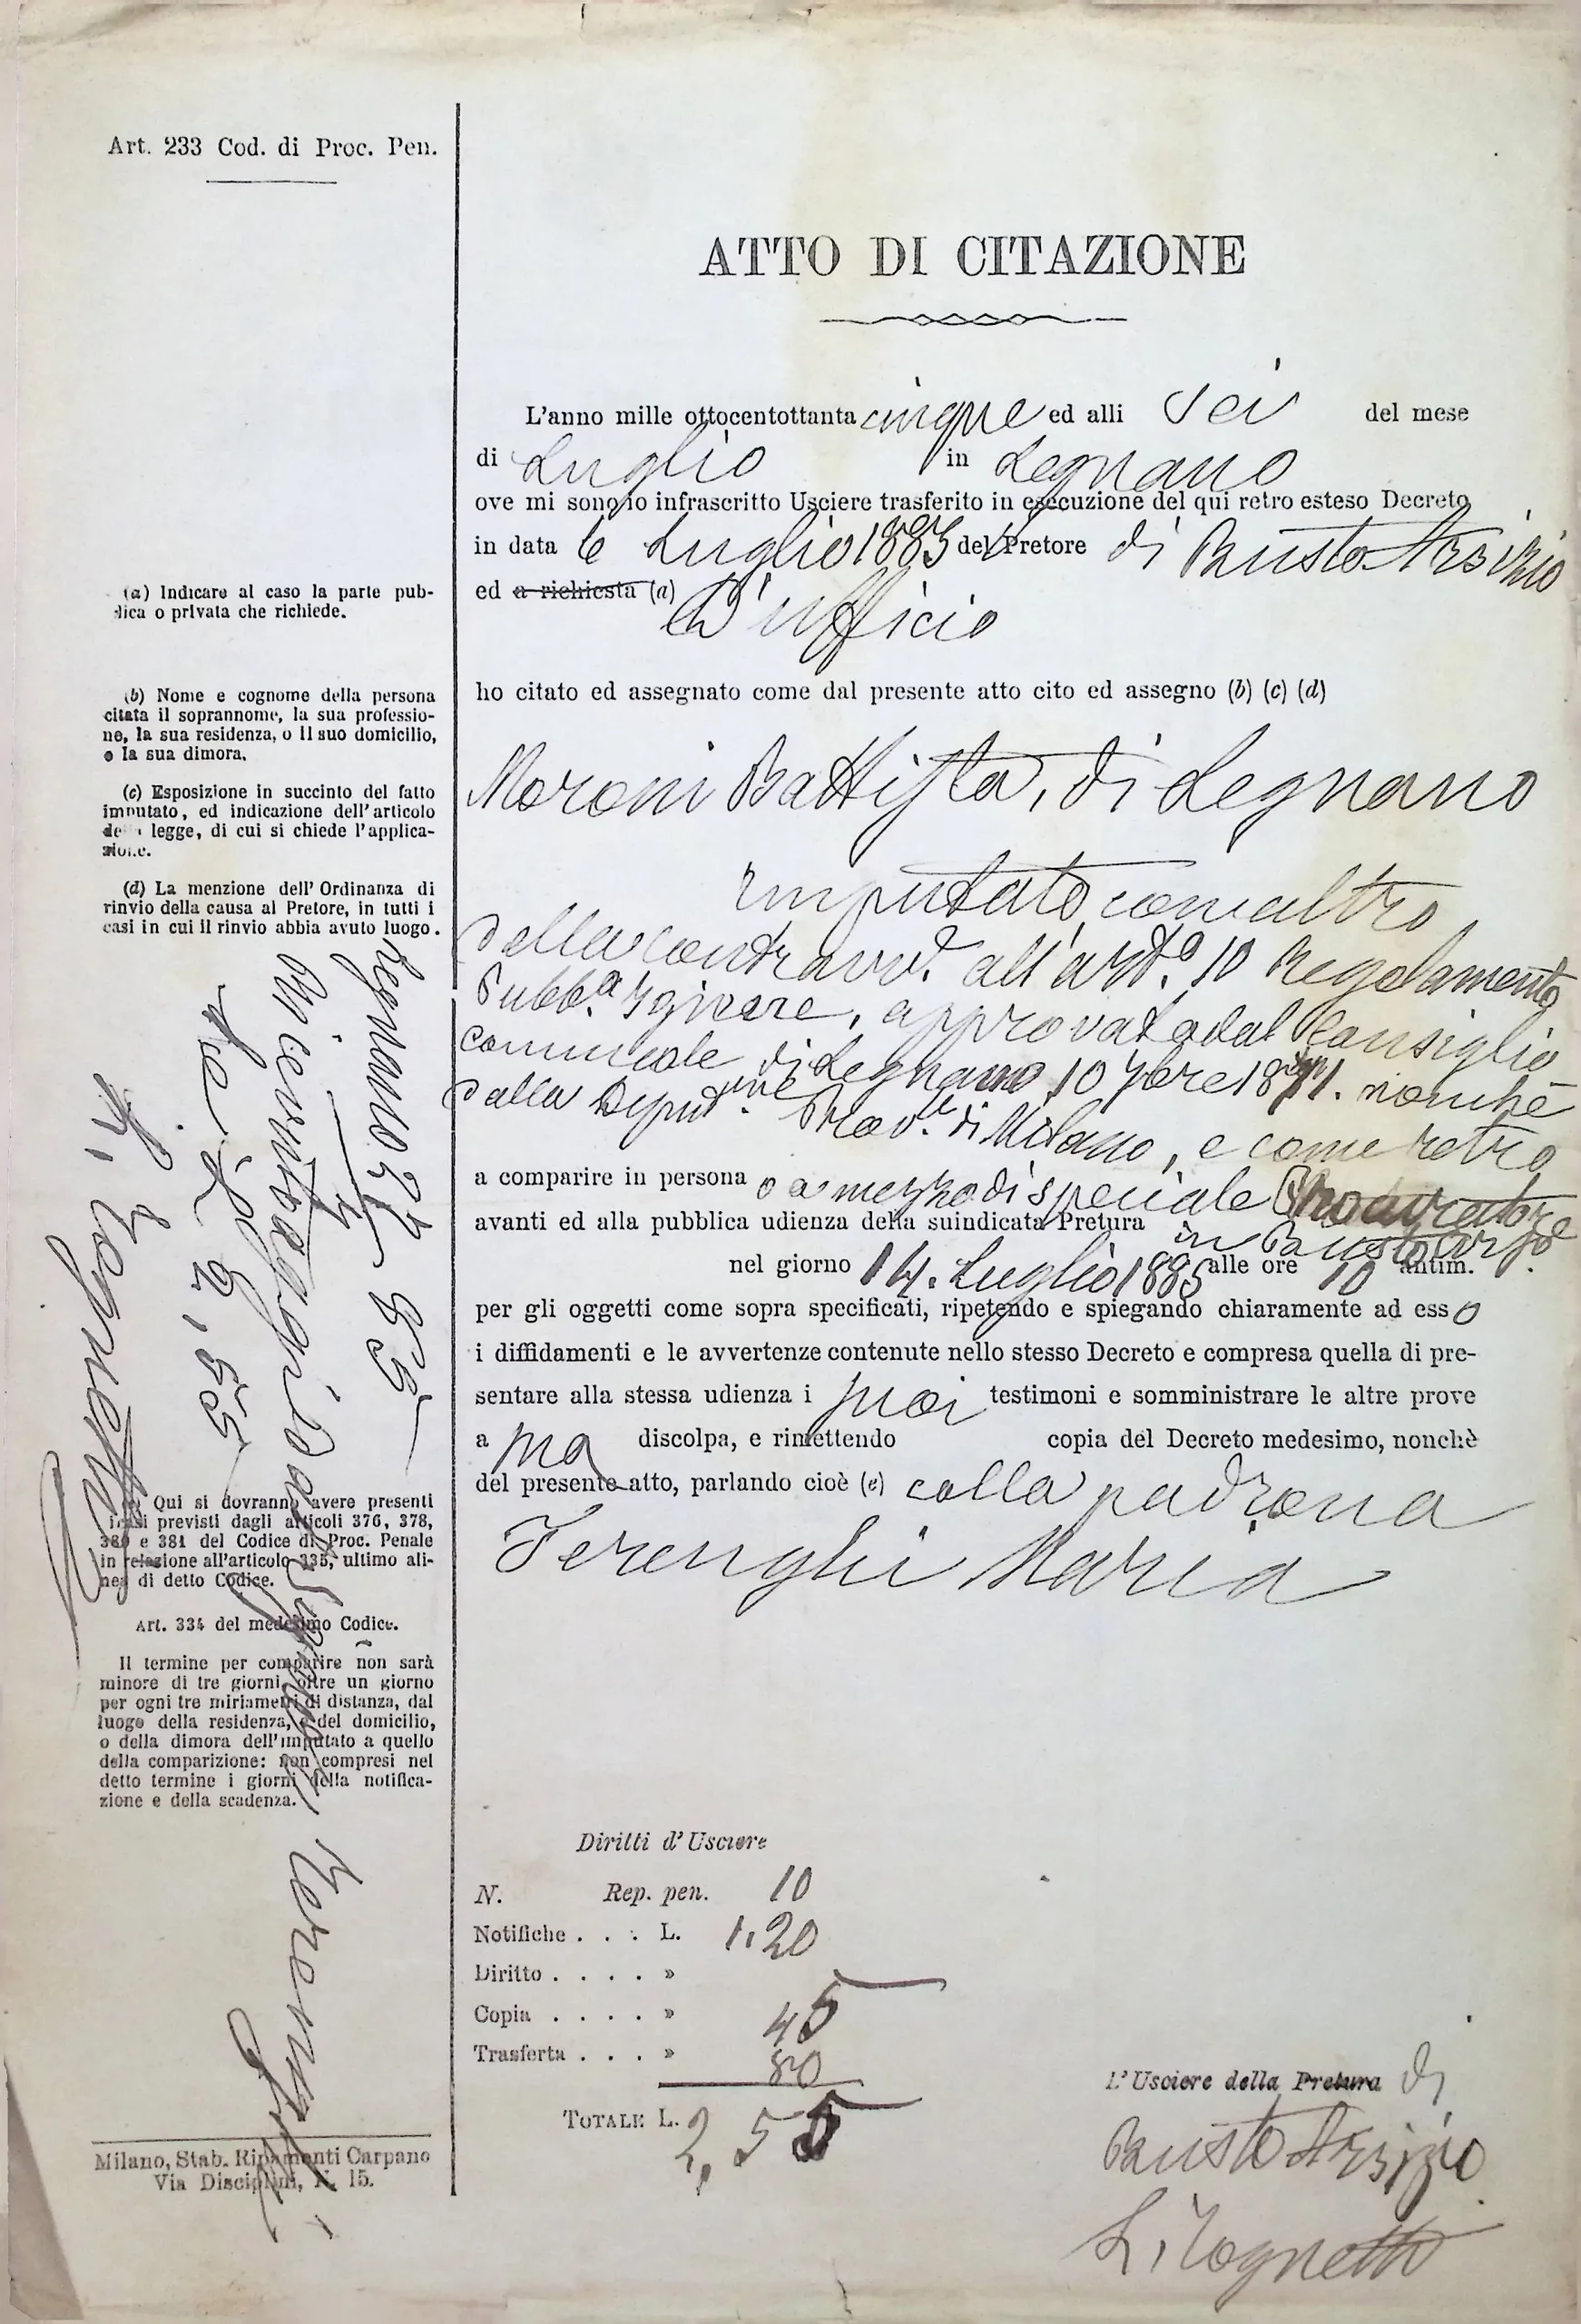 Art. 233 Cod. di Proc. Pen.
ATTO DI CITAZIONE
L'anno mille ottocentottanta cinque ed alli Sei del mese
di Luglio in Legnano
ove mi sono io infrascritto Usciere trasferito in esecuzione del qui retro esteso Decreto
in data 6 Luglio 1885 del Pretore di Busto Arsizio
ed a richiesta (a) D'ufficio
(a) Indicare al caso la parte pub-
blica o privata che richiede.
ho citato ed assegnato come dal presente atto cito ed assegno (b) (c) (d)
(b) Nome e cognome della persona
citata il soprannome, la sua professio-
ne, la sua residenza, o il suo domicilio,
o la sua dimora.
(c) Esposizione in succinto del fatto
imputato, ed indicazione dell'articolo
della legge, di cui si chiede l'applica-
zione.
(d) La menzione dell'Ordinanza di
rinvio della causa al Pretore, in tutti i
casi in cui il rinvio abbia avuto luogo.
Moroni Battista, di Legnano
imputato con altro
della contravv.e all'art.o 10 Regolamento
Pubb.a Igiene, approvato dal Consiglio
comunale di Legnano 10 7bre 1871. nonchè
dalla Deput.ne Prov.le di Milano, e come retro
a comparire in persona o a mezzo di speciale Procuratore
avanti ed alla pubblica udienza della suindicata Pretura in Busto Arso.
nel giorno 14. Luglio 1885 alle ore 10 antim.
per gli oggetti come sopra specificati, ripetendo e spiegando chiaramente ad esso
i diffidamenti e le avvertenze contenute nello stesso Decreto e compresa quella di pre-
sentare alla stessa udienza i suoi testimoni e somministrare le altre prove
a sua discolpa, e rimettendo copia del Decreto medesimo, nonchè
del presente atto, parlando cioè (e) colla padrona
Ferenghi Maria
(e) Qui si dovranno avere presenti
i casi previsti dagli articoli 376, 378,
380 e 381 del Codice di Proc. Penale
in relazione all'articolo 335, ultimo ali-
nea di detto Codice.
Art. 334 del medesimo Codice.
Il termine per comparire non sarà
minore di tre giorni, oltre un giorno
per ogni tre miriametri di distanza, dal
luogo della residenza, o del domicilio,
o della dimora dell'imputato a quello
della comparizione: non compresi nel
detto termine i giorni della notifica-
zione e della scadenza.
Legnano 24/7 85
Ricevuto
L. 2,55
L. Tognetti
Diritti d'Usciere
N. Rep. pen. 10
Notifiche . . . L. 1.20
Diritto . . . . »
Copia . . . . » 45
Trasferta . . . » 80
TOTALE L. 2,55
L'Usciere della Pretura di
Busto Arsizio
L. Tognetti
Milano, Stab. Ripamonti Carpano
Via Disciplini, N. 15.